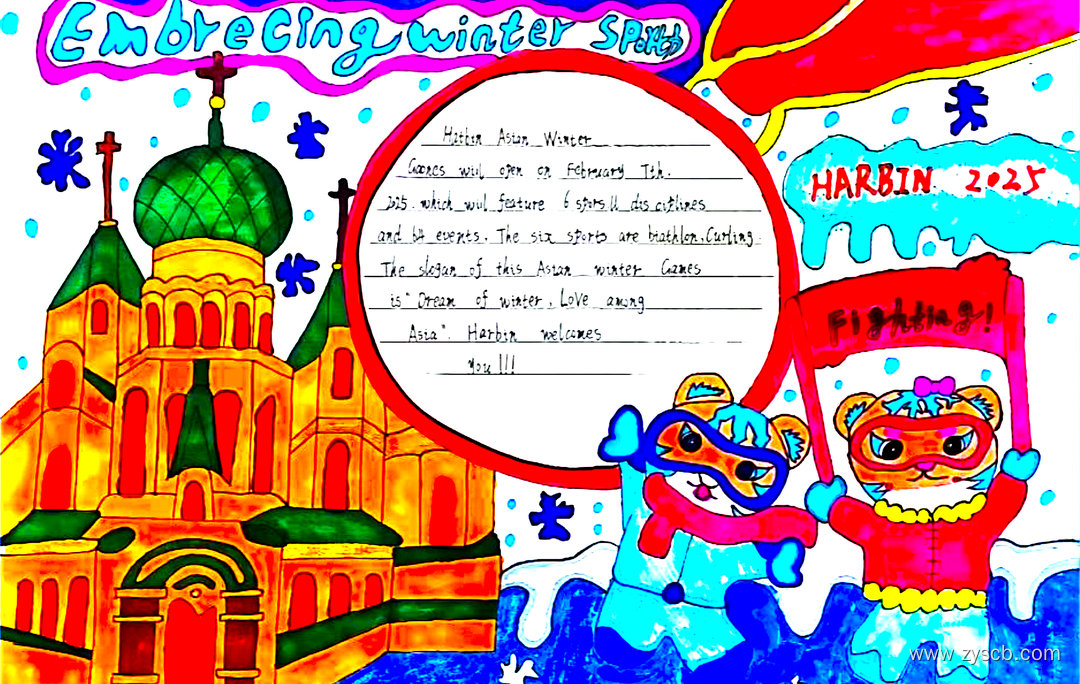 Embrecing winter sports
Harbin Asian Winter
Games will open on February 7th.
2025. which will feature 6 sports 11 disciplines
and 64 events. The six sports are biathlon, Curling.
The slogan of this Asian winter Games
is "Dream of winter, Love among
Asia". Harbin welcomes
you!!!
HARBIN 2025
Fighting!
www.zyscb.com